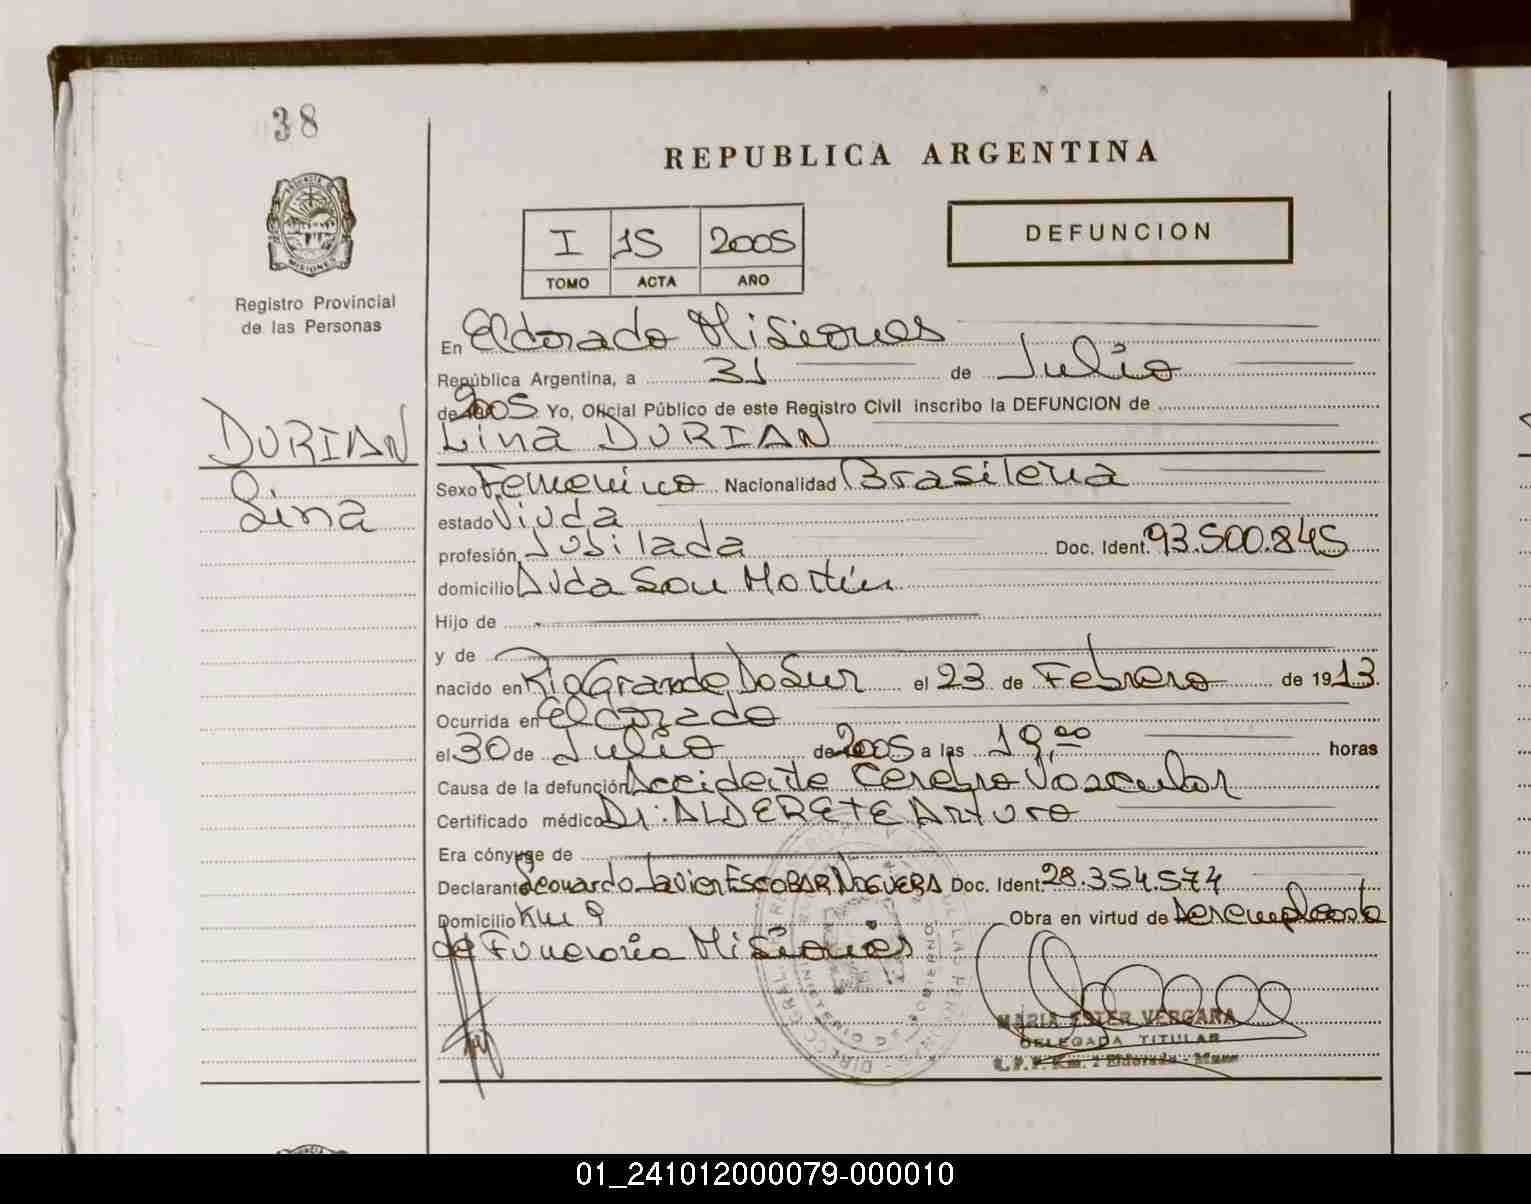 38
REPUBLICA ARGENTINA
I 15 2005
TOMO ACTA AÑO
DEFUNCION
PROVINCIA DE
MISIONES
Registro Provincial
de las Personas
DURIAN
Lina
En Eldorado Misiones
República Argentina, a 31 de Julio
de 2005 Yo, Oficial Público de este Registro Civil inscribo la DEFUNCION de
Lina DURIAN
Sexo Femenino Nacionalidad Brasilena
estado Viuda
profesión Jubilada Doc. Ident. 93.500.845
domicilio Avda San Martín
Hijo de
y de
nacido en Rio Grande Do Sur el 23 de Febrero de 1913
Ocurrida en Eldorado
el 30 de Julio de 2005 a las 19,00 horas
Causa de la defunción Accidente Cerebro Vascular
Certificado médico Dr: ALDERETE Arturo
Era cónyuge de
Declarante Leonardo Javier ESCOBAR NOGUERA Doc. Ident. 28.354.574
Domicilio Km 9 Obra en virtud de ser empleado
de Funeraria Misiones
MARIA ESTER VERGARA
DELEGADA TITULAR
R.P.P. Km. 2 Eldorado - Mnes
01_241012000079-000010